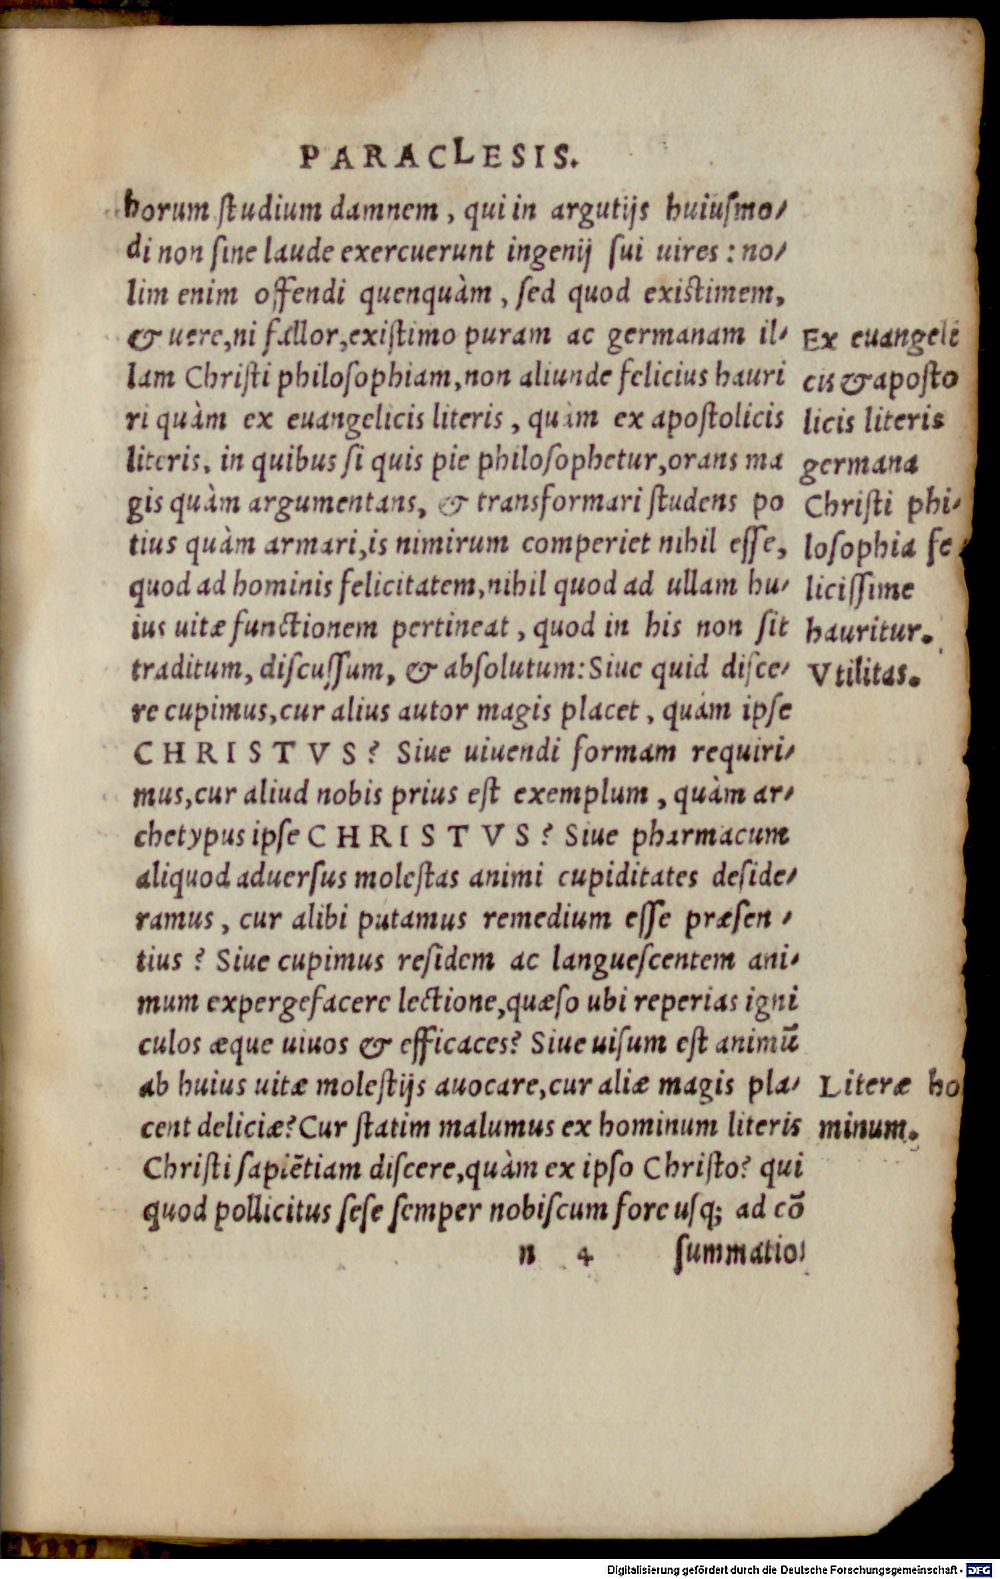 PARACLESIS.
horum studium damnem, qui in argutijs huiusmo-
di non sine laude exercuerunt ingenij sui uires: no-
lim enim offendi quenquàm, sed quod existimem,
& uere, ni fallor, existimo puram ac germanam il-
lam Christi philosophiam, non aliunde felicius hauri
ri quàm ex euangelicis literis, quàm ex apostolicis
literis, in quibus si quis pie philosophetur, orans ma
gis quàm argumentans, & transformari studens po
tius quàm armari, is nimirum comperiet nihil esse,
quod ad hominis felicitatem, nihil quod ad ullam hu-
ius uitæ functionem pertineat, quod in his non sit
traditum, discussum, & absolutum: Siue quid disce-
re cupimus, cur alius autor magis placet, quám ipse
CHRISTVS? Siue uiuendi formam requiri-
mus, cur aliud nobis prius est exemplum, quàm ar-
chetypus ipse CHRISTVS? Siue pharmacum
aliquod aduersus molestas animi cupiditates deside-
ramus, cur alibi putamus remedium esse præsen-
tius? Siue cupimus residem ac languescentem ani-
mum expergefacere lectione, quæso ubi reperias igni
culos æque uiuos & efficaces? Siue uisum est animū
ab huius uitæ molestijs auocare, cur aliæ magis pla-
cent deliciæ? Cur statim malumus ex hominum literis
Christi sapiētiam discere, quàm ex ipso Christo? qui
quod pollicitus sese semper nobiscum fore usq; ad cō
n 4 summatio-
Ex euangeli
cis & aposto
licis literis
germana
Christi phi-
losophia fe
licissime
hauritur.
Vtilitas.
Literæ ho
minum.
Digitalisierung gefördert durch die Deutsche Forschungsgemeinschaft - DFG